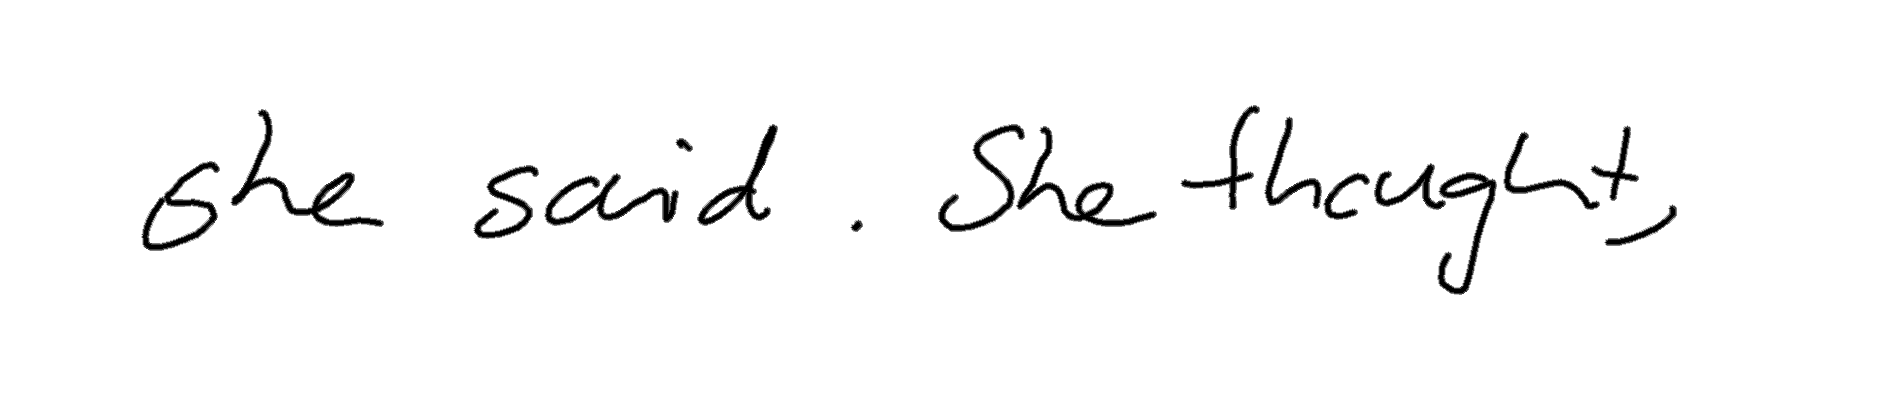 she said. She thought,